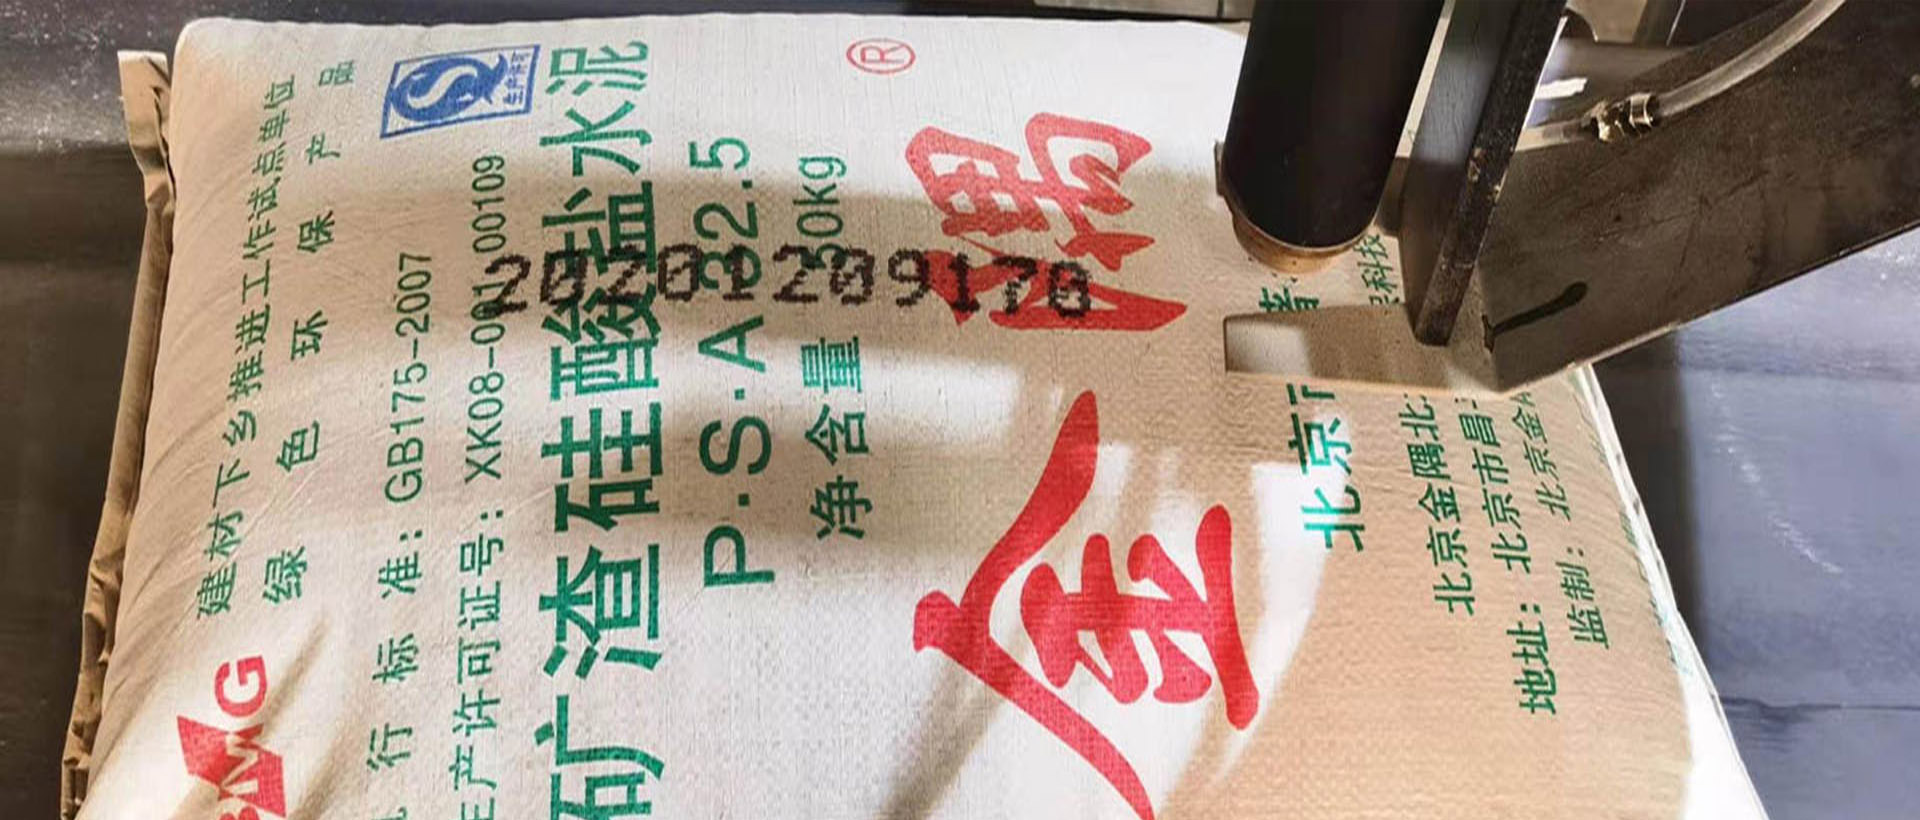 建材下乡推进工作试点单位
绿色环保产品
BMG
生产许可
执行标准：GB175-2007
生产许可证号：XK08-001-00109
矿渣硅酸盐水泥
P·S·A 32.5
净含量 50kg
金隅®
北京
北京金隅北
地址：北京市昌
监制：北京金
科技